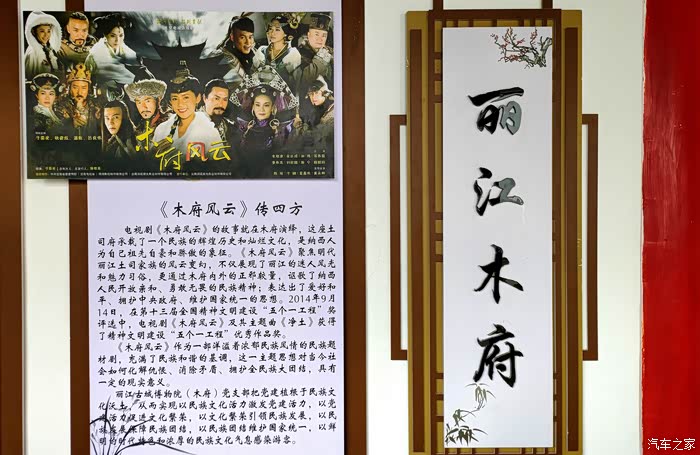 木
府风云
《木府风云》传四方
电视剧《木府风云》的故事就在木府演绎，这座土
司府承载了一个民族的辉煌历史和灿烂文化，是纳西人
为自己祖先自豪和骄傲的象征。《木府风云》聚焦明代
丽江土司家族的风云变幻，不仅展现了丽江的迷人风光
和魅力习俗，更通过木府内外的正邪较量，讴歌了纳西
人民开放亲和、勇敢无畏的民族精神；表达出了爱好和
平、拥护中央政府、维护国家统一的思想。2014年9月
14日，在第十三届全国精神文明建设“五个一工程”奖
评选中，电视剧《木府风云》及其主题曲《净土》获得
了精神文明建设“五个一工程”优秀作品奖。
《木府风云》作为一部洋溢着浓郁民族风情的民族题
材剧，充满了民族和谐的基调，这一主题思想对当今社
会如何化解仇恨、消除矛盾、拥护全民族大团结，具有
一定的现实意义。
丽江古城博物院（木府）党支部把党建植根于民族文
化沃土，从而实现以民族文化活力激发党建活力，以党
建活力促进文化繁荣，以文化繁荣引领民族发展，以民
族发展保障民族团结，以民族团结维护国家统一，以鲜
明的时代特色和浓厚的民族文化气息感染游客。
丽江木府
汽车之家